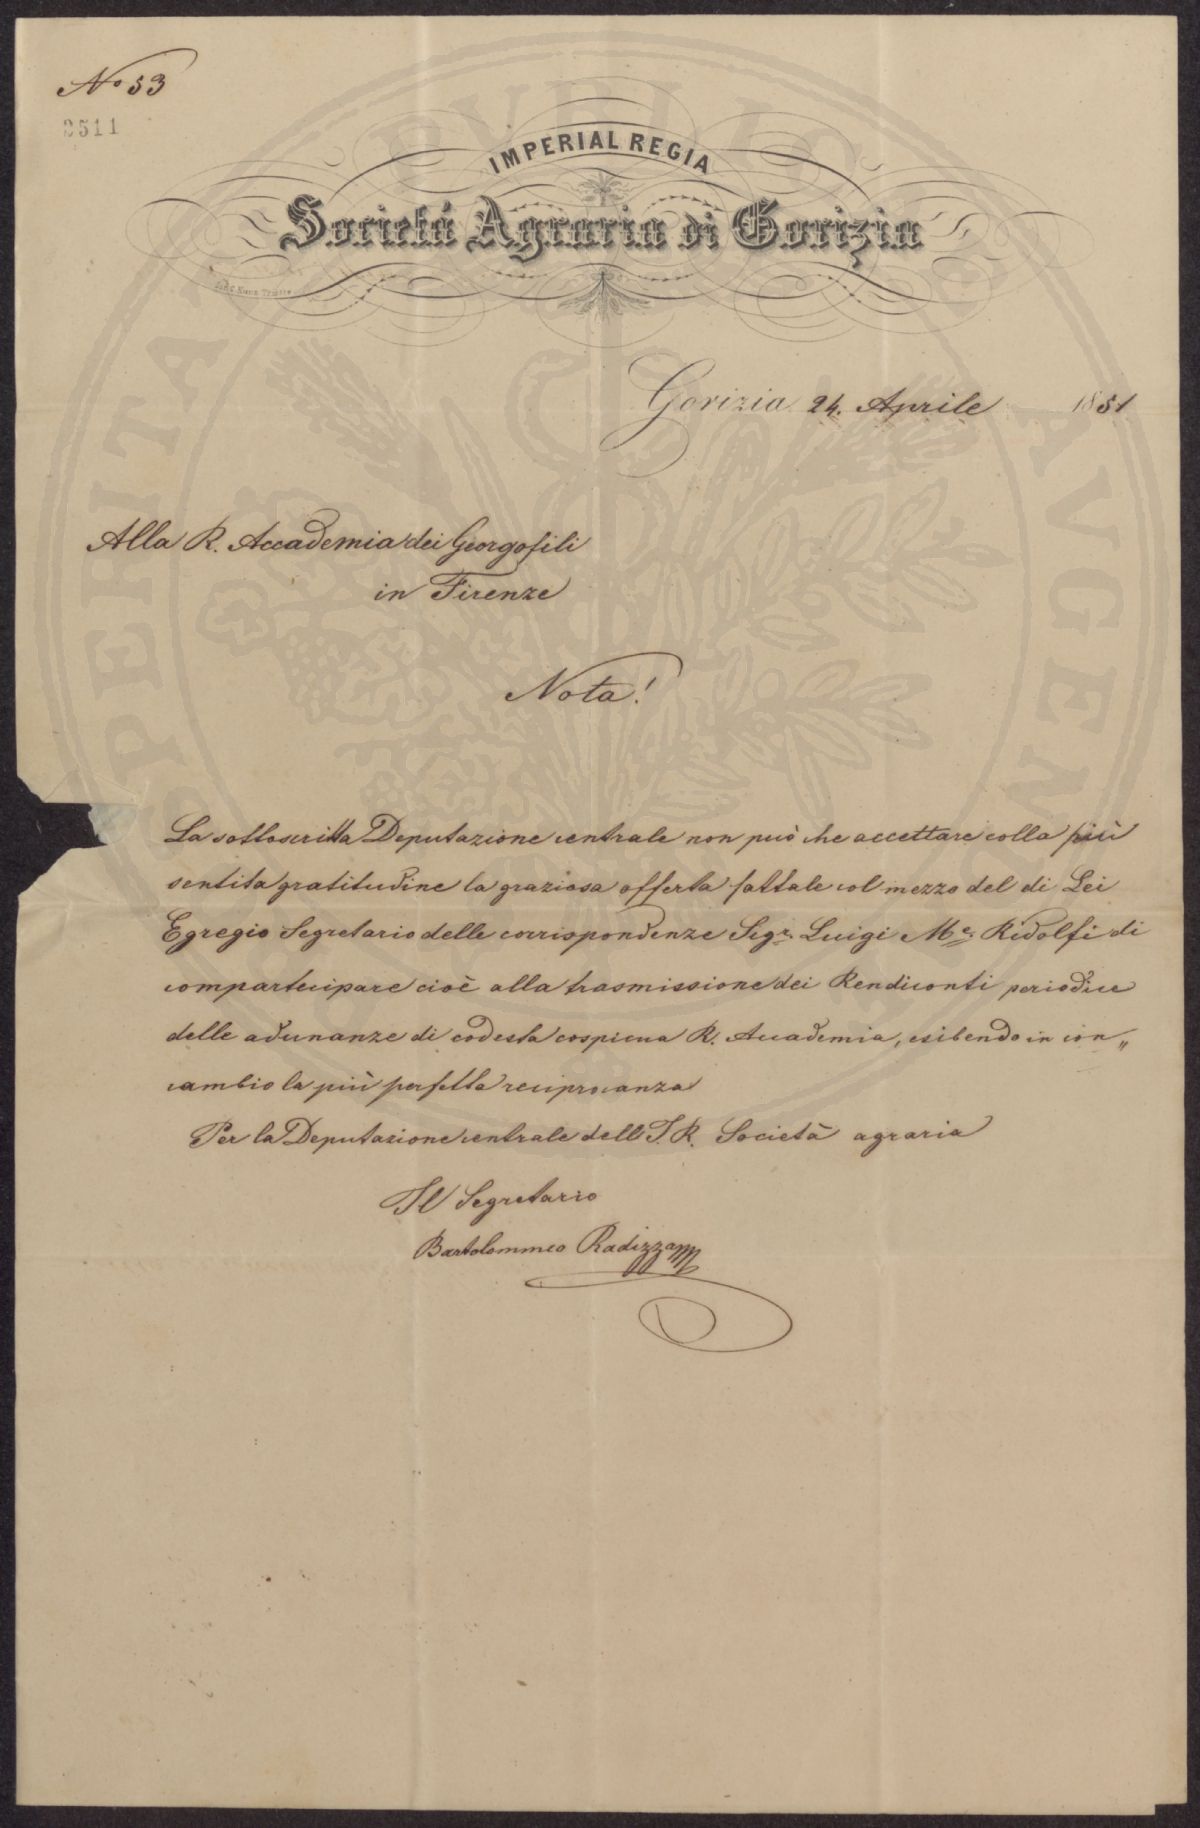 No 53
2511
IMPERIAL REGIA
Societá Agraria di Gorizia
Gorizia 24. Aprile 1851
Alla R. Accademia dei Georgofili
in Firenze
Nota!
La sottoscritta Deputazione centrale non può che accettare colla più
sentita gratitudine la graziosa offerta fattale col mezzo del di Lei
Egregio Segretario delle corrispondenze Sigr. Luigi Me. Ridolfi di
compartecipare cioè alla trasmissione dei Rendiconti periodici
delle adunanze di codesta cospicua R. Accademia, esibendo in con„
cambio la più perfetta reciprocanza
Per la Deputazione centrale dell'I. R. Società agraria
Il Segretario
Bartolommeo Radizza